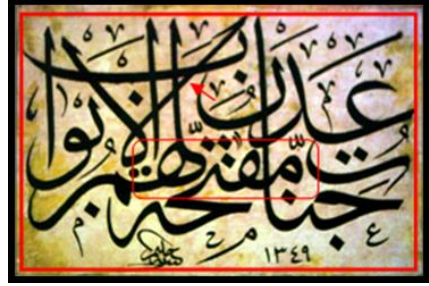 جنّات عدن مفتّحة لهم الابواب
١٣٤٩